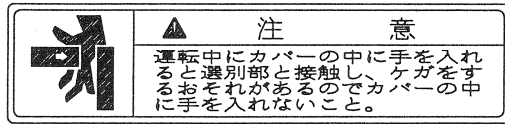 注意
運転中にカバーの中に手を入れ
ると選別部と接触し、ケガをす
るおそれがあるのでカバーの中
に手を入れないこと。